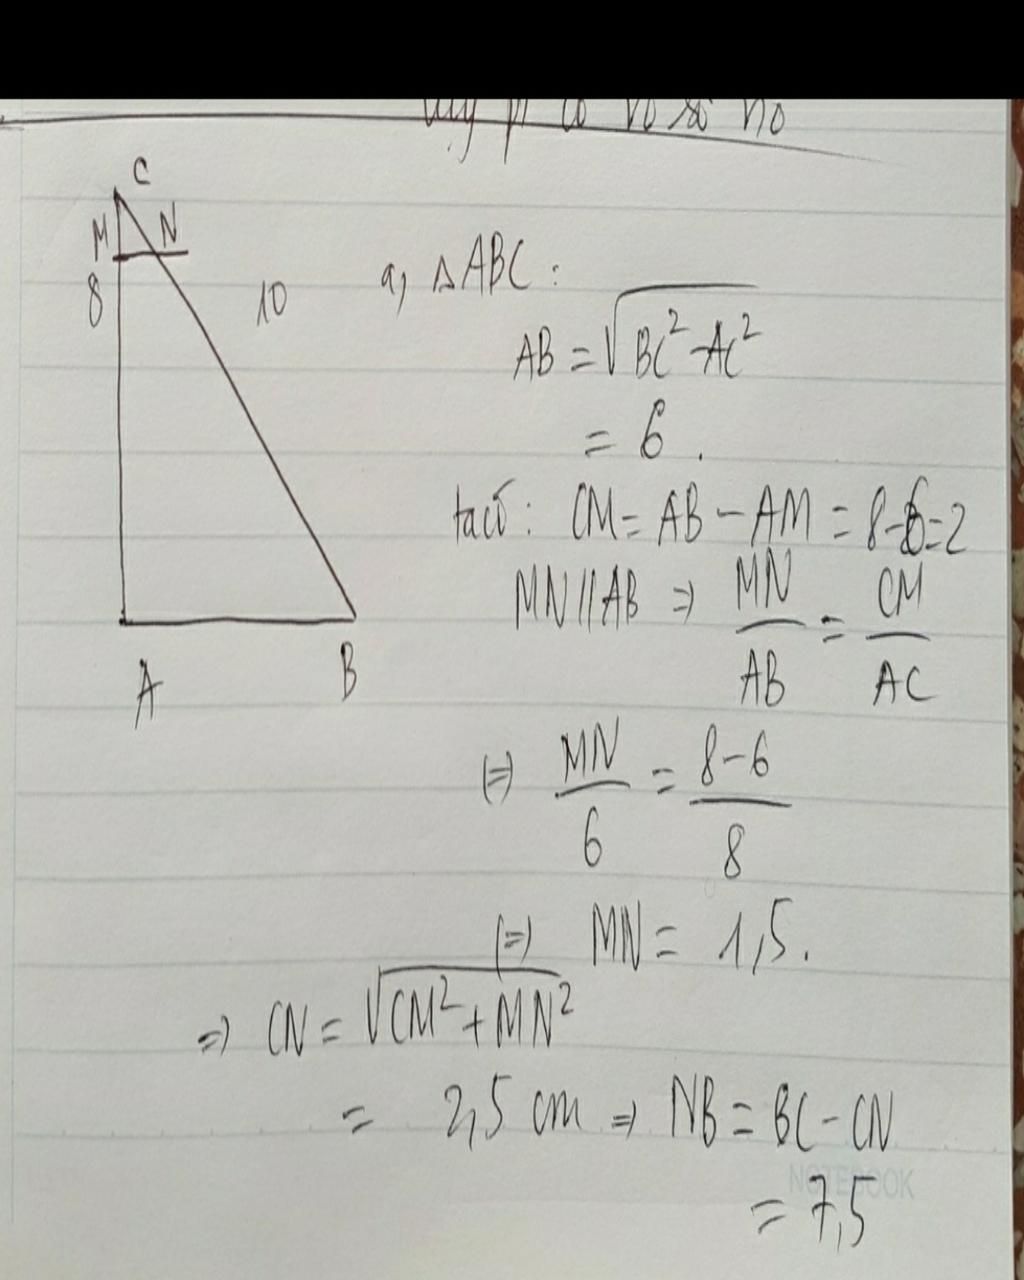 C
M N
8
10
A B
a, △ABC:
AB = √BC²-AC²
= 6.
ta có: CM = AB - AM = 8-6=2
MN // AB => MN/AB = CM/AC
(=) MN/6 = 8-6/8
(=) MN = 1,5.
=> CN = √CM² + MN²
= 2,5 cm => NB = BC - CN
NOTEBOOK
= 7,5